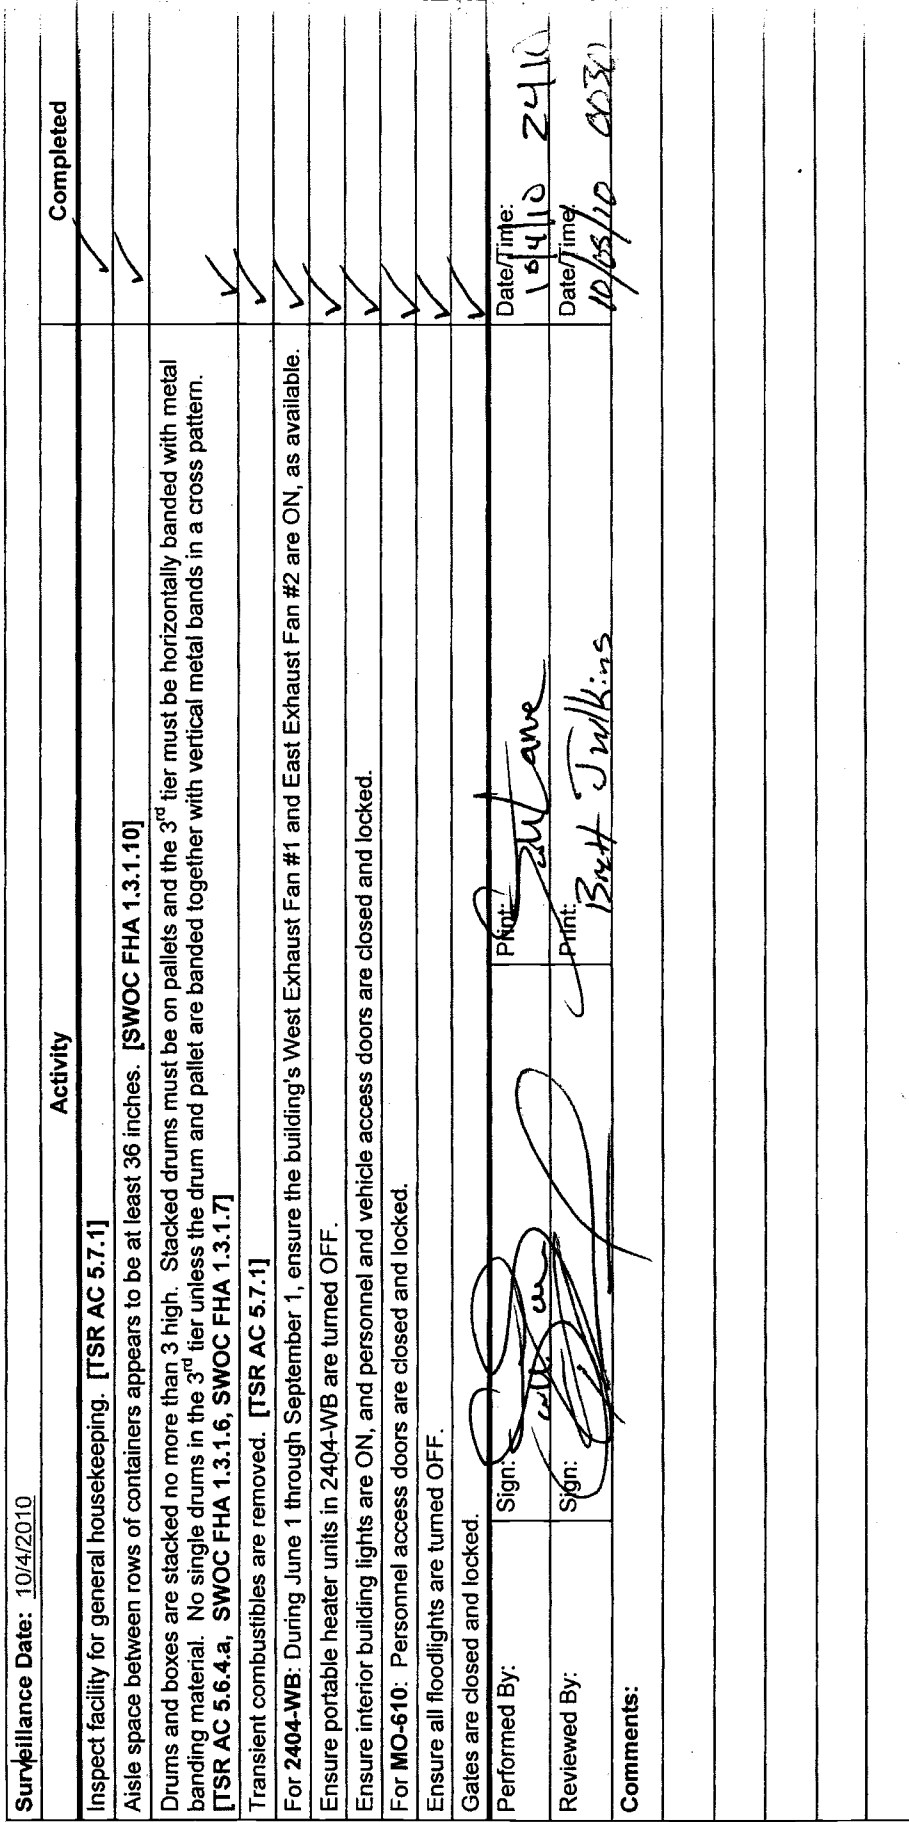 Surveillance Date: 10/4/2010
Activity Completed
Inspect facility for general housekeeping. [TSR AC 5.7.1] ✓
Aisle space between rows of containers appears to be at least 36 inches. [SWOC FHA 1.3.1.10] ✓
Drums and boxes are stacked no more than 3 high. Stacked drums must be on pallets and the 3rd tier must be horizontally banded with metal
banding material. No single drums in the 3rd tier unless the drum and pallet are banded together with vertical metal bands in a cross pattern.
[TSR AC 5.6.4.a, SWOC FHA 1.3.1.6, SWOC FHA 1.3.1.7] ✓
Transient combustibles are removed. [TSR AC 5.7.1] ✓
For 2404-WB: During June 1 through September 1, ensure the building's West Exhaust Fan #1 and East Exhaust Fan #2 are ON, as available. ✓
Ensure portable heater units in 2404-WB are turned OFF. ✓
Ensure interior building lights are ON, and personnel and vehicle access doors are closed and locked. ✓
For MO-610: Personnel access doors are closed and locked. ✓
Ensure all floodlights are turned OFF. ✓
Gates are closed and locked. ✓
Performed By: Sign: Print: Date/Time:
10/4/10 2410
Reviewed By: Sign: Print: Date/Time:
Brett Julkins 10/05/10 0030
Comments: